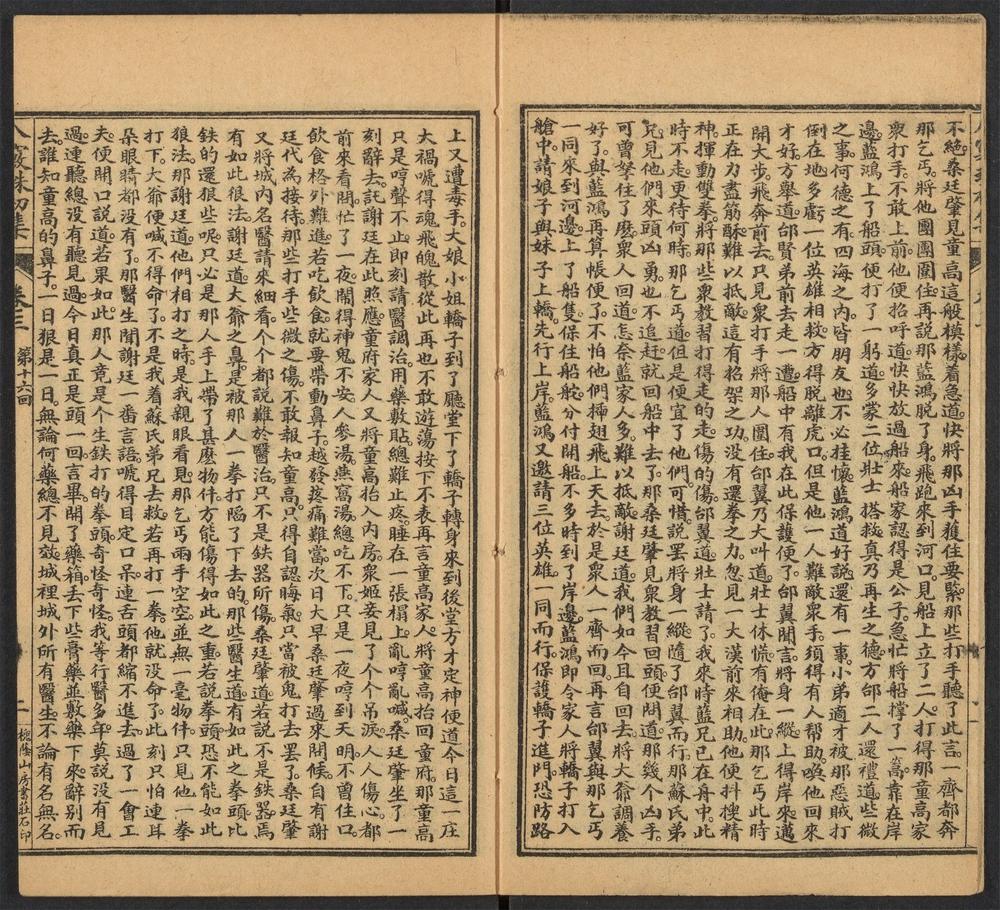 不絕桑廷肇見童高這般模樣着急道快將那凶手獲住要緊那些打手聽了此言一齊都奔
那乞丐將他團團圍住再說那藍鴻脫了身飛跑來到河口見船上立了二人打得那童高家
衆打手不敢上前他便招呼道快快放過船來船家認得是公子急忙將船撑了一篙靠在岸
邊藍鴻上了船頭便打了一躬道多蒙二位壯士搭救真乃再生之德方邰二人還禮道些微
之事何德之有四海之內皆朋友也不必挂懷藍鴻道好說還有一事小弟適才被那惡賊打
倒在地多虧一位英雄相救方得脫離虎口但是他一人難敵衆手須得有人帮助喚他回來
才好方舉道邰賢弟前去走一遭船中有我在此保護便了邰翼聞言將身一縱上得岸來邁
開大步飛奔前去只見衆打手將那人圍住邰翼乃大叫道壯士休慌有俺在此那乞丐此時
正在力盡筋酥難以抵敵這有招架之功沒有還拳之力忽見一大漢前來相助他便抖擻精
神揮動雙拳將那些衆教習打得走的走傷的傷邰翼道壯士請了我來時藍兄已在舟中此
時不走更待何時那乞丐道但是便宜了他們可惜說罷將身一縱隨了邰翼而行那蘇氏弟
兄見他們來頭凶勇也不追赶就回船中去了那桑廷肇見衆教習回頭便問道那幾个凶手
可曾拏住了麼衆人回道怎奈藍家人多難以抵敵謝廷道我們如今且自回去將大爺調養
好了與藍鴻再算帳便了不怕他們揷翅飛上天去於是衆人一齊而回再言邰翼與那乞丐
一同來到河邊上了船隻保住船舵分付開船不多時到了岸邊藍鴻即令家人將轎子打入
艙中請娘子與妹子上轎先行上岸藍鴻又邀請三位英雄一同而行保護轎子進門恐防路
上又遭毒手大娘小姐轎子到了廳堂下了轎子轉身來到後堂方才定神便道今日這一庄
大禍唬得魂飛魄散從此再也不敢遊蕩按下不表再言童高家人將童高抬回童府那童高
只是哼聲不止即刻請醫調治用藥敷貼總難止疼睡在一張榻上亂哼亂喊桑廷肇坐了一
刻辭去託謝廷在此照應童府家人又將童高抬入內房衆姬妾見了个个吊淚人人傷心都
前來看問忙了一夜鬧得神鬼不安人參湯燕窩湯總吃不下只是一夜哼到天明不曾住口
飲食格外難進若吃飲食就要帶動鼻子越發疼痛難當次日大早桑廷肇過來問候自有謝
廷代為接待那些打手些微之傷不敢報知童高只得自認晦氣只當被鬼打去罷了桑廷肇
又將城內名醫請來細看个个都說難於醫治只不是鉄器所傷桑廷肇道若說不是鉄器焉
有如此很法謝廷道大爺之鼻是被那人一拳打陷了下去的那些醫生道有如此之拳頭比
鉄的還狠些呢只必是那人手上帶了甚麼物件方能傷得如此之重若說拳頭恐不能如此
狼法那謝廷道他們相打之時是我親眼看見那乞丐兩手空空並無一毫物件只見他一拳
打下大爺便喊不得命了不是我着蘇氏弟兄去救若再打一拳他就沒命了此刻只怕連耳
朵眼睛都沒有了那醫生聞謝廷一番言語唬得目定口呆連舌頭都縮不進去過了一會工
夫便開口說道若果如此那人竟是个生鉄打的拳頭奇怪奇怪我等行醫多年莫說沒有見
過連聽總沒有聽見過今日真正是頭一回言畢開了藥箱丟下些膏藥並敷藥下來辭別而
去誰知童高的鼻子一日狠是一日無論何藥總不見效城裡城外所有醫生不論有名無名
卷三 第十六回
二